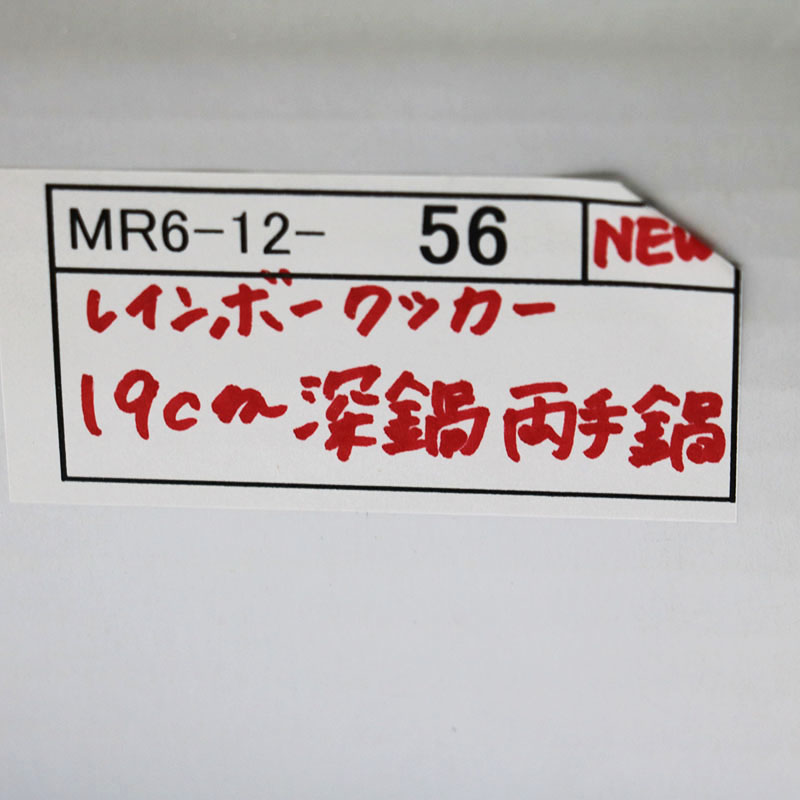 MR6-12- 56 NEW
レインボークッカー
19cm 深鍋 両手鍋